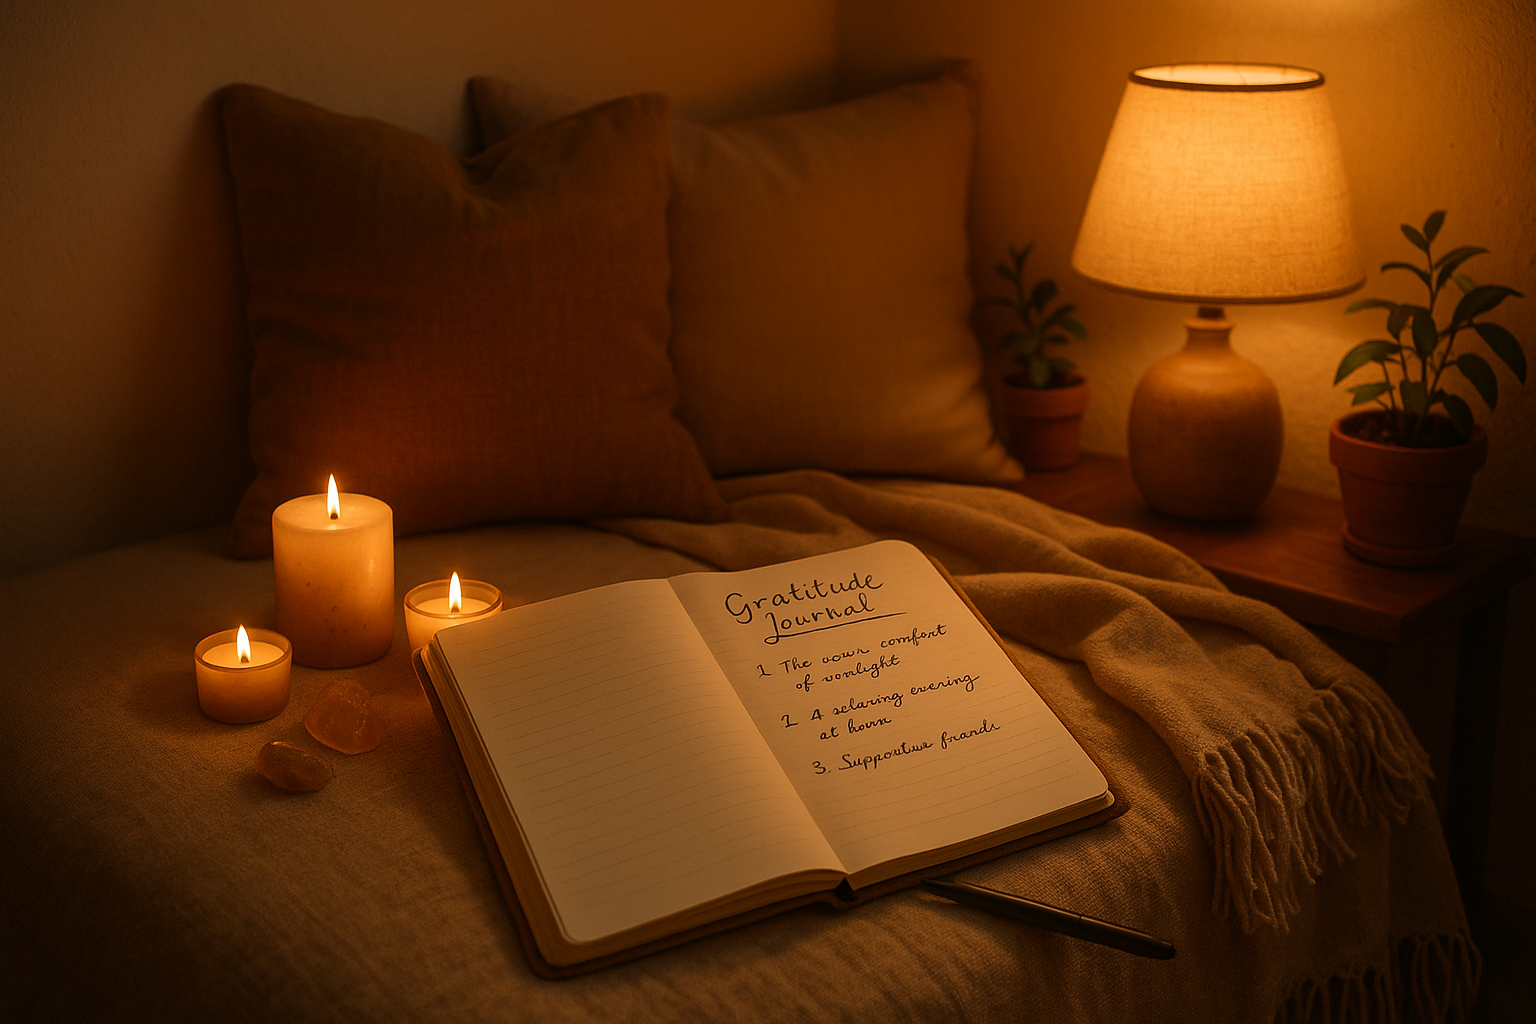 Gratitude
Journal
1 The vowr comfort
of vomlight
1. A selaring evering
at houm
3. Supportuve frards